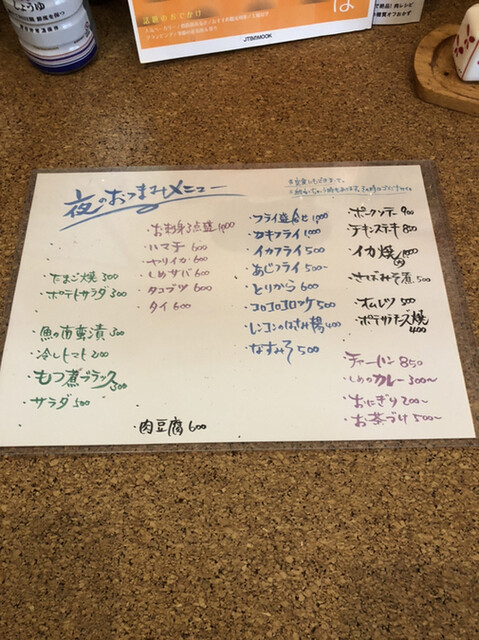 しょうゆ
は
JTBのMOOK
夜のおつまみメニュー
・たまご焼 300
・ポテトサラダ 300
・魚の南蛮漬 300
・冷しトマト 200
・もつ煮ブラック 500
・サラダ 500
・お刺身3点盛 1,000
・ハマチ 600
・ヤリイカ 600
・しめサバ 600
・タコブツ 600
・タイ 600
・肉豆腐 600
・フライ盛合せ 1,000
・カキフライ 1,000
・イカフライ 500
・あじフライ 500〜
・とりから 600
・コロコロコロッケ 500
・レンコンのはさみ揚 400
・なすみそ 500
・ポークソテー 900
・チキンステキ 800
・イカ焼 1,000
・さばみそ煮 500
・オムレツ 500
・ポテサラチーズ焼 400
・チャーハン 850
・しめのカレー 300〜
・おにぎり 200〜
・お茶づけ 500〜